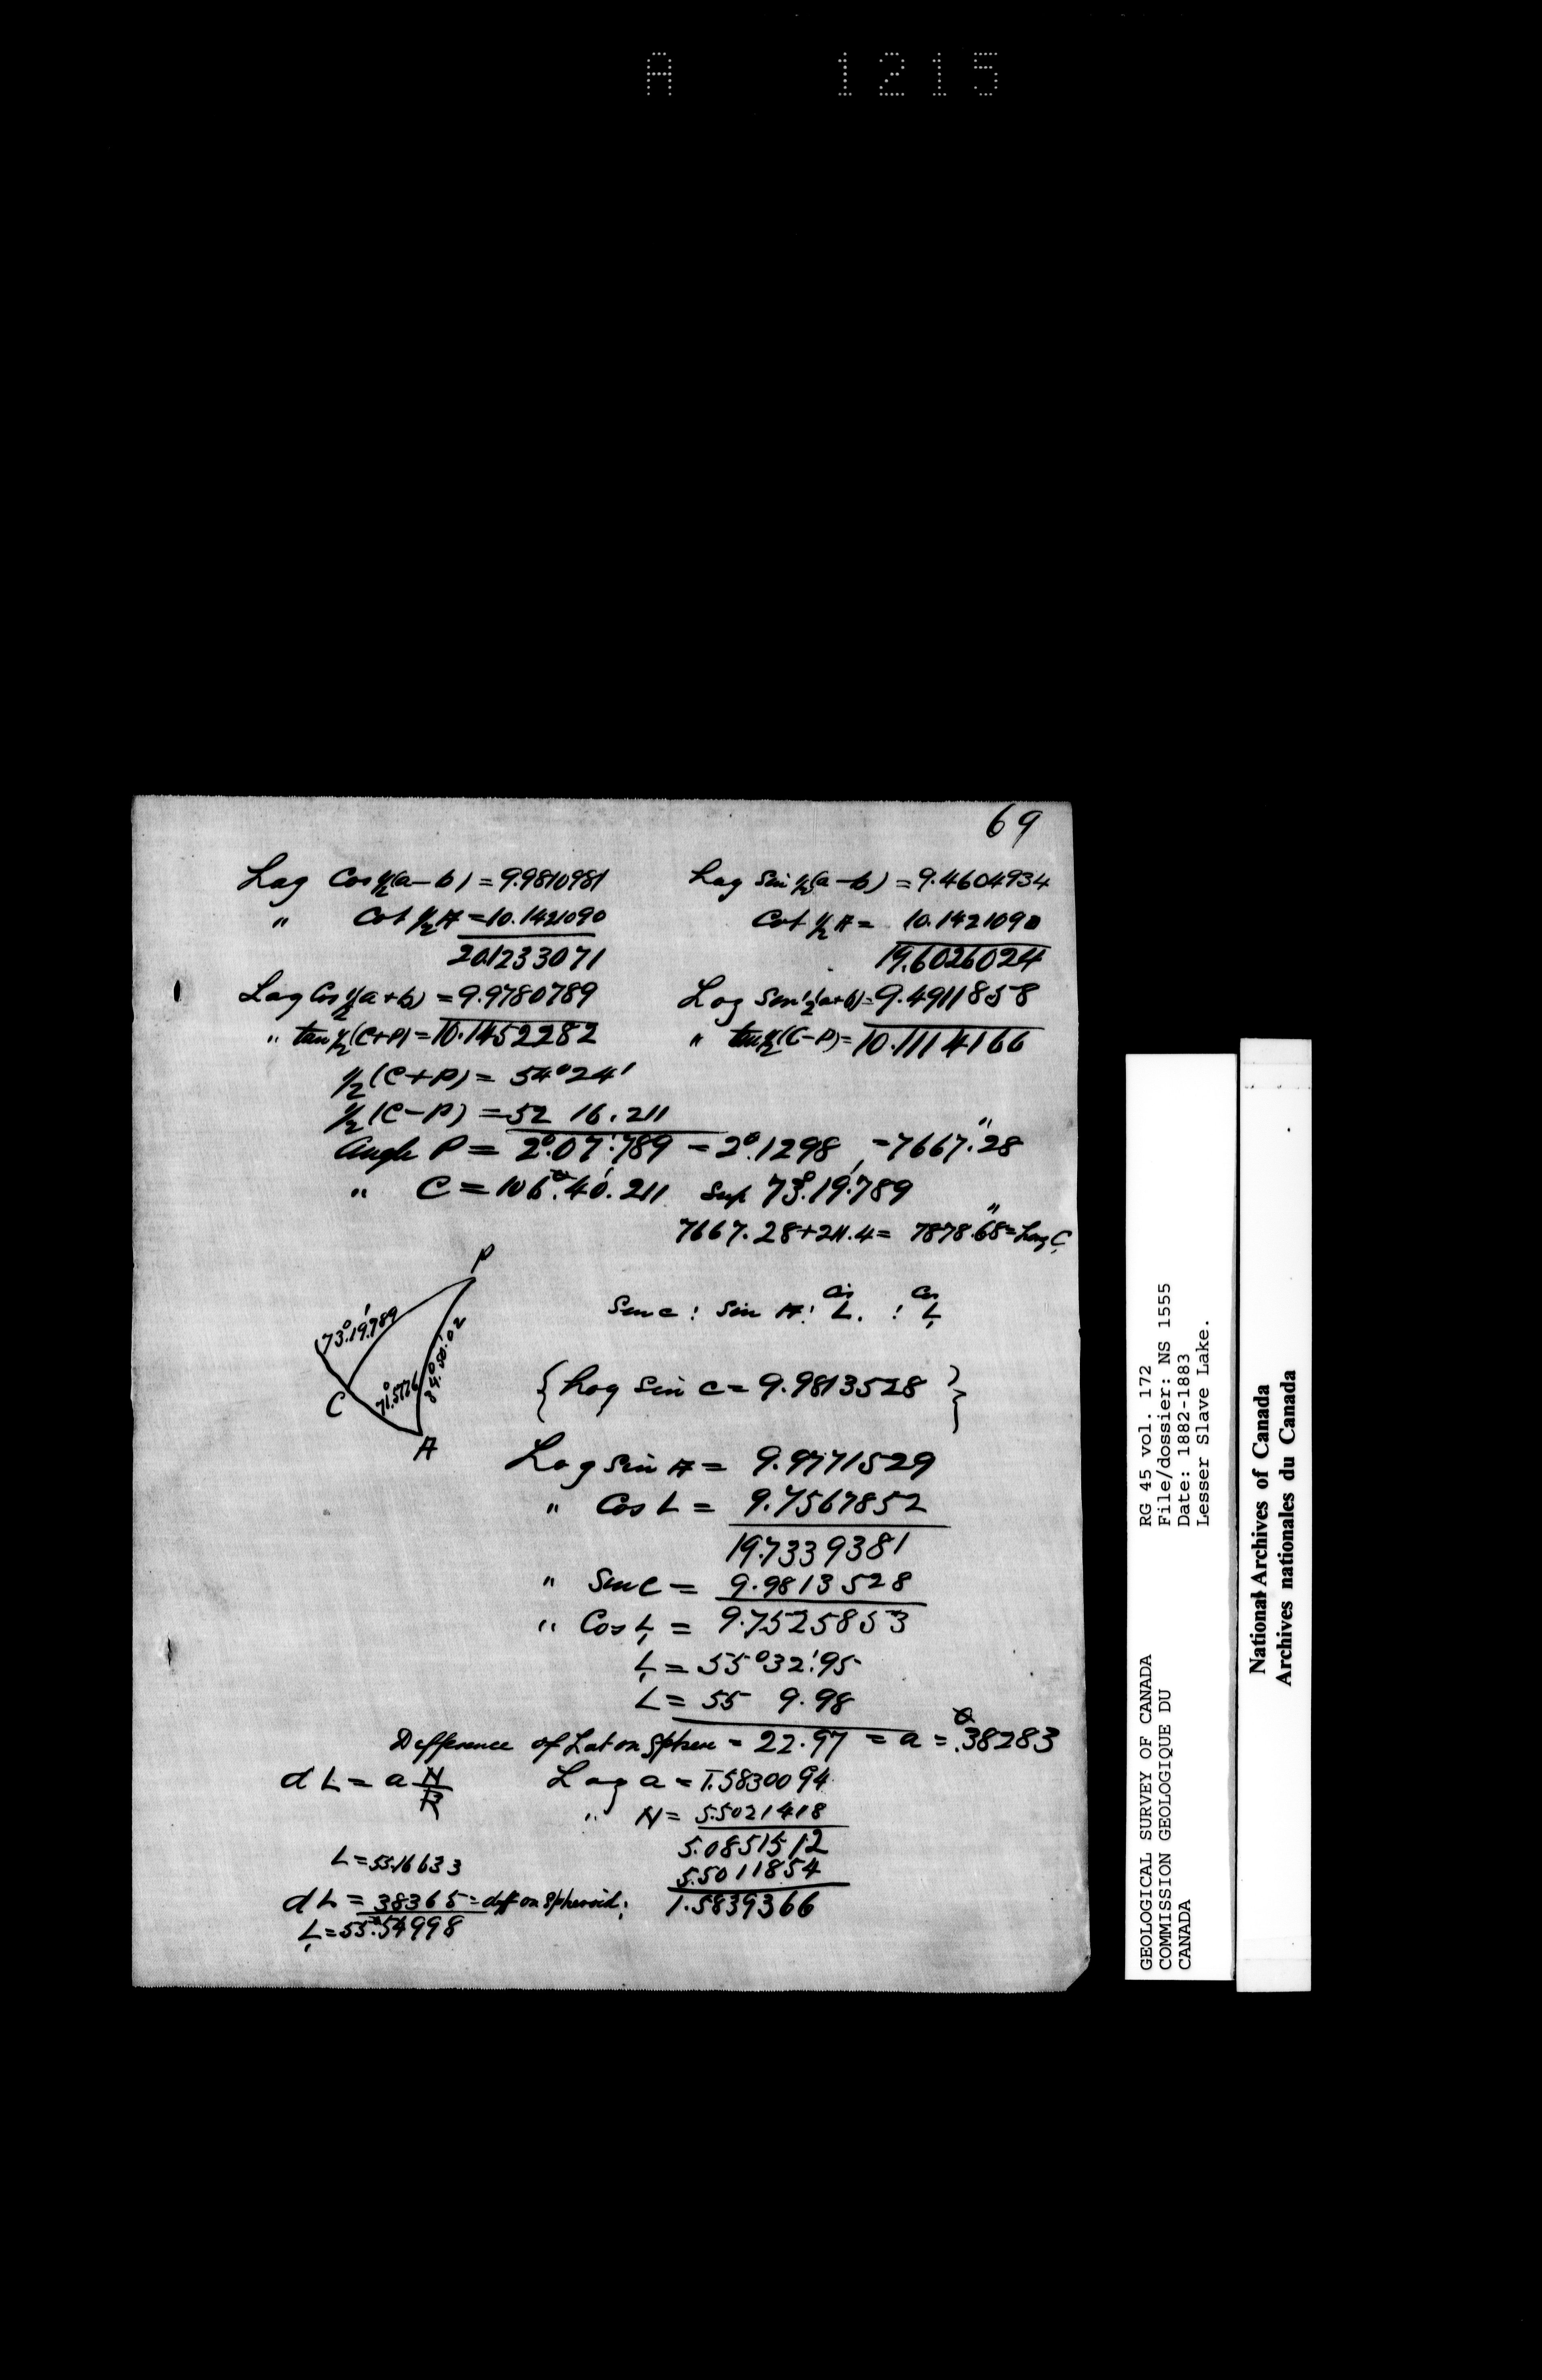 A 1215
69
Log Cos ½(a-b) = 9.9810981
" Cot ½A = 10.1421090
20.1233071
Log Cos ½(a+b) = 9.9780789
" tan ½(C+P) = 10.1452282
Log Sin ½(a-b) = 9.4604934
Cot ½A = 10.1421090
19.6026024
Log Sin ½(a+b) = 9.4911858
" tan ½(C-P) = 10.1114166
½(C+P) = 54°24'
½(C-P) = 52 16.211
Angle P = 2°.07'.789 = 2°.1298 = 7667".28
" C = 106°.40'.211 Sup 73°.19'.789
7667.28+211.4 = 7878".68 = Long C,
P
73°.19'.789
84°.50'.02
71°.5776
C
A
Sin c : Sin A : Cos L. : Cos L,
{Log Sin C = 9.9813528}
Log Sin A = 9.9771529
" Cos L = 9.7567852
19.7339381
" Sin C = 9.9813528
" Cos L, = 9.7525853
L, = 55°32'.95
L = 55 9.98
Difference of Lat on Sphere = 22.97 = a = °.38283
dL = a N/R
Log a = 1̅.5830094
" N = 5.5021418
5.0851512
5.5011854
1̅.5839366
L = 55.16633
dL = 38365 = diff on Spheroid;
L, = 55°.54998
GEOLOGICAL SURVEY OF CANADA
COMMISSION GEOLOGIQUE DU
CANADA
RG 45 vol. 172
File/dossier: NS 1555
Date: 1882-1883
Lesser Slave Lake.
National Archives of Canada
Archives nationales du Canada